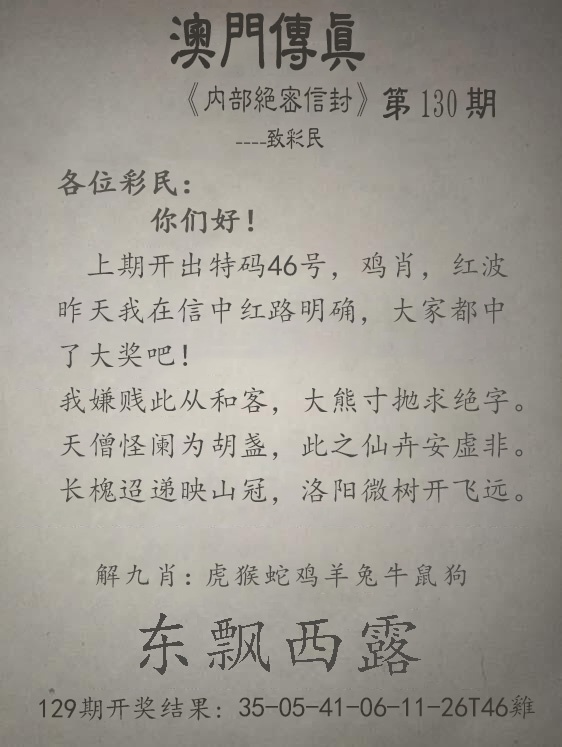 澳門傳眞
《内部絕密信封》第130期
----致彩民
各位彩民：
你们好！
上期开出特码46号，鸡肖，红波
昨天我在信中红路明确，大家都中
了大奖吧！
我嫌贱此从和客，大熊寸抛求绝字。
天僧怪阑为胡盏，此之仙卉安虚非。
长槐迢递映山冠，洛阳微树开飞远。
解九肖：虎猴蛇鸡羊兔牛鼠狗
东飘西露
129期开奖结果：35-05-41-06-11-26T46雞